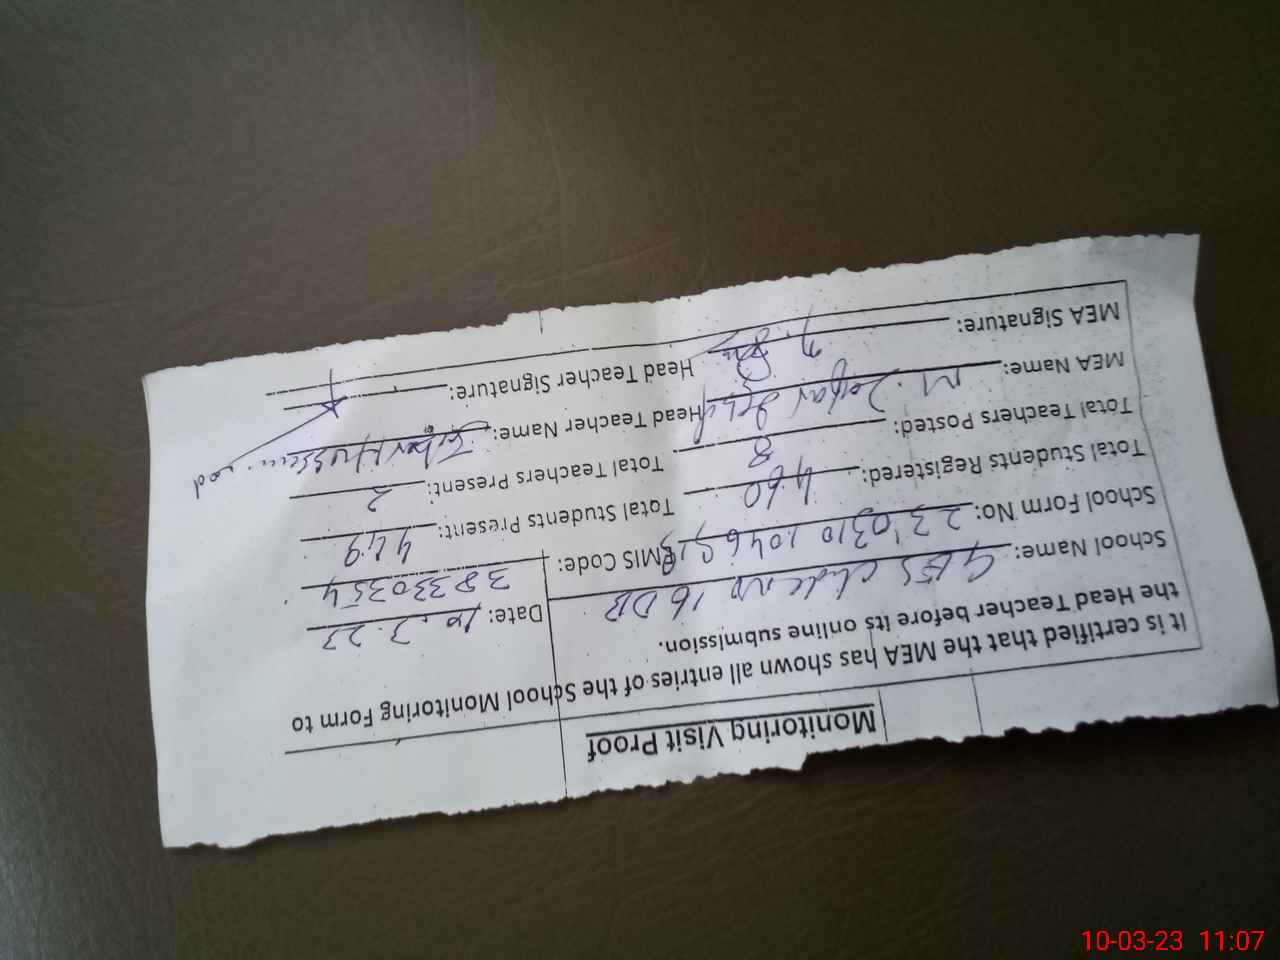 Monitoring Visit Proof
It is certified that the MEA has shown all entries of the School Monitoring Form to
the Head Teacher before its online submission.
School Name: GES 16 DB Date: 10.3.23
School Form No: EMIS Code: 38330354
Total Students Registered: 460 Total Students Present: 449
Total Teachers Posted: 8 Total Teachers Present: 2
MEA Name: M. Zafar Head Teacher Name:
MEA Signature: Head Teacher Signature:
10-03-23 11:07